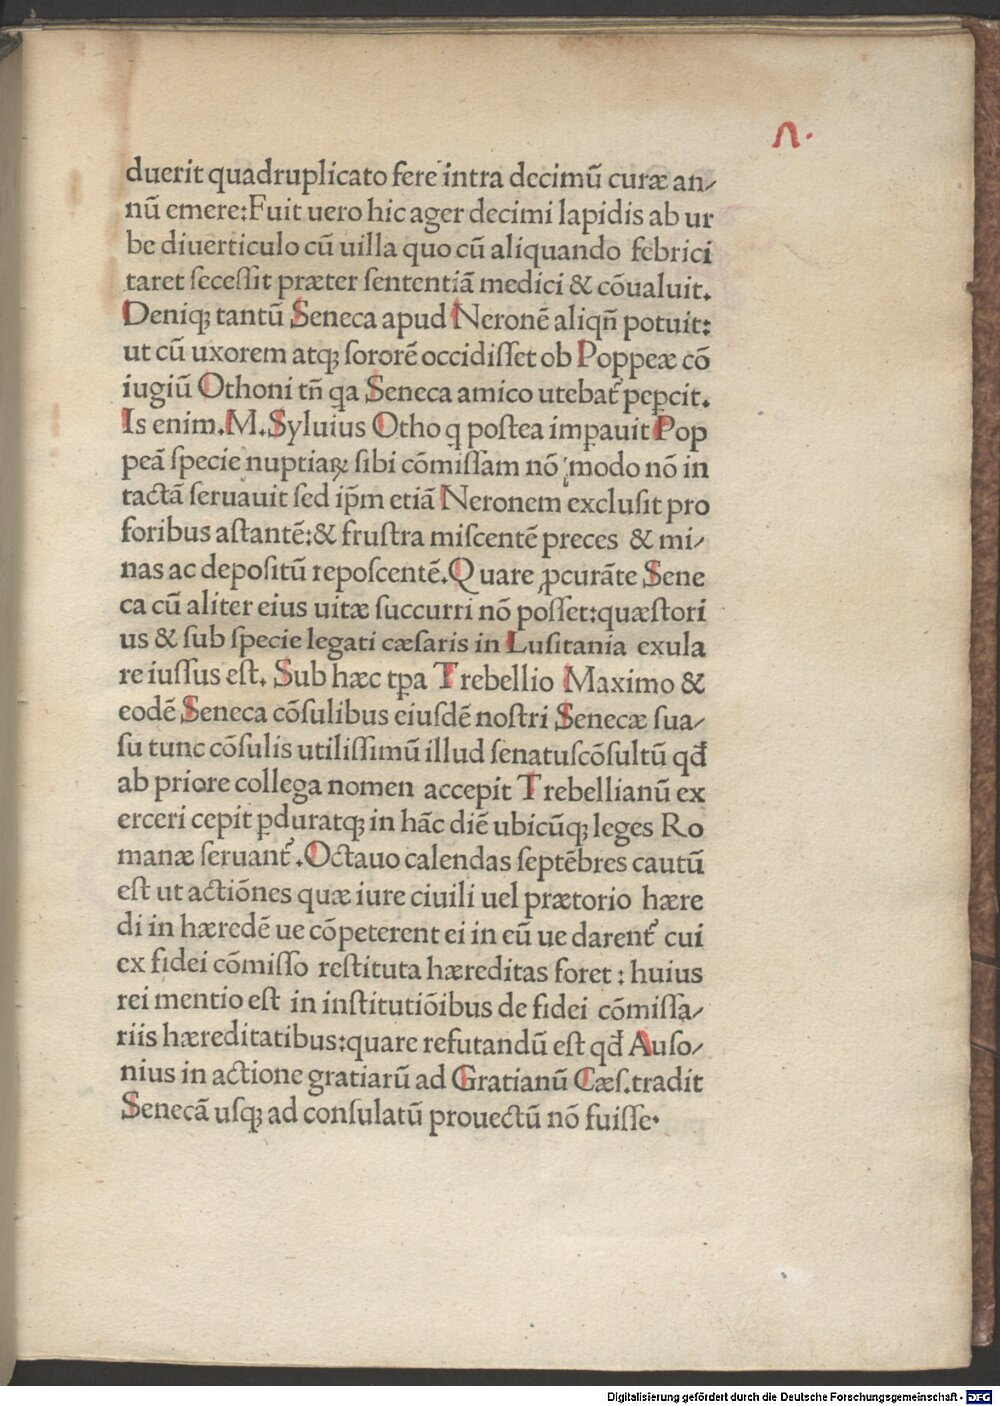 ꝵ.
duerit quadruplicato fere intra decimū curæ an⸗
nū emere:Fuit uero hic ager decimi lapidis ab ur
be diuerticulo cū uilla quo cū aliquando febrici
taret ſeceſſit præter ſententiā medici & cōualuit.
Deniqꝫ tantū Seneca apud Neronē aliqñ potuit:
ut cū uxorem atqꝫ ſororē occidiſſet ob Poppeæ cō
iugiū Othoni tñ qa Seneca amico utebat᷑ peꝑcit.
Is enim.M.Syluius Otho q poſtea imꝑauit Pop
peā ſpecie nuptiaꝝ ſibi cōmiſſam nō modo nō in
tactā ſeruauit ſed ip̄m etiā Neronem excluſit pro
foribus aſtantē:& fruſtra miſcentē preces & mi⸗
nas ac depoſitū repoſcentē.Quare ꝓcurāte Sene
ca cū aliter eius uitæ ſuccurri nō poſſet:quæſtori
us & ſub ſpecie legati cæſaris in Luſitania exula
re iuſſus eſt. Sub hæc tꝑa Trebellio Maximo &
eodē Seneca cōſulibus eiuſdē noſtri Senecæ ſua⸗
ſu tunc cōſulis utiliſſimū illud ſenatuſcōſultū qđ
ab priore collega nomen accepit Trebellianū ex
erceri cepit ꝑduratqꝫ in hāc diē ubicūqꝫ leges Ro
manæ ſeruant᷑.Octauo calendas ſeptēbres cautū
eſt ut actiōnes quæ iure ciuili uel prætorio hære
di in hæredē ue cōpeterent ei in eū ue darent᷑ cui
ex fidei cōmiſſo reſtituta hæreditas foret : huius
rei mentio eſt in inſtitutiōibus de fidei cōmiſſa⸗
riis hæreditatibus:quare refutandū eſt qđ Auſo⸗
nius in actione gratiarū ad Gratianū Cæſ.tradit
Senecā uſqꝫ ad conſulatū prouectū nō fuiſſe.
Digitalisierung gefördert durch die Deutsche Forschungsgemeinschaft - DFG